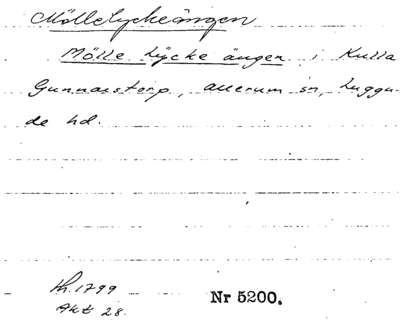 Möllelyckeängen
Mölle Lycke ängen i Kulla
Gunnarstorp, Allerum sn, Luggu-
de hd.
Kh. 1799
Akt 28.
Nr 5200.